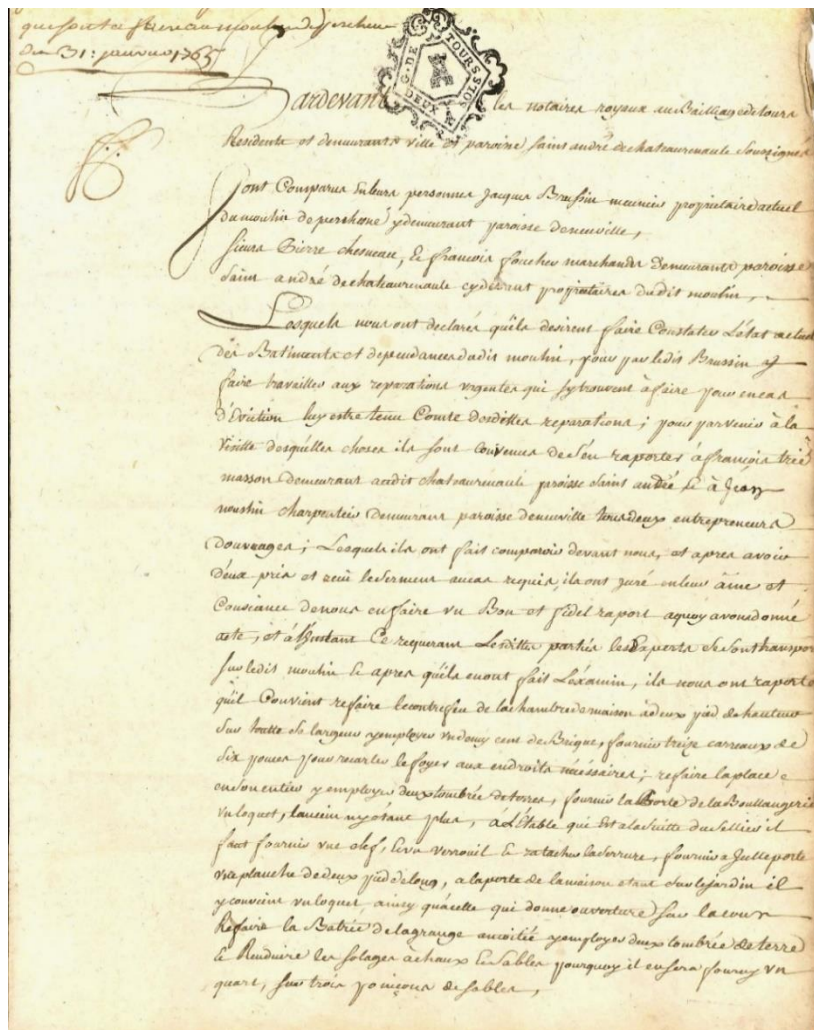 du 31: janvier 1765
G. DE TOURS
DEUX SOLS
Pardevant les notaires royaux au Bailliage de tours
Residents et demeurants ville et paroisse saint andré de chateaurenault soussignés
Sont Comparus en leurs personnes Jacques Brussin meunier proprietaire actuel
du moulin de y demeurant paroisse deneuville,
sieurs Pierre chesneau, & francois foucher marchands demeurants paroisse
saint andré de chateaurenault cydevant proprietaires dudit moulin,
Lesquels nous ont declaré qu'ils desirent faire Constater L'état actuel
des Batiments et dependances dudit moulin, pour par ledit Brussin y
faire travailler aux reparations urgentes qui sy trouvent à faire pour en cas
d'Eviction luy estre tenu Comte desdittes reparations; pour parvenir à la
Visitte desquelles choses ils sont convenus de s'en raporter à francois
masson demeurant audit chateaurenault paroisse saint andré & à Jean
charpentier demeurant paroisse deneuville tous deux entrepreneurs
d'ouvrages; Lesquels ils ont fait comparoir devant nous, et apres avoir
d'eux pris et recu le serment au cas requis, ils ont juré en leur âme et
Consiance de nous en faire un Bon et fidel raport a quoy avons donné
acte, et à l'Instant Ce requerant Lesdittes parties les Experts se sont transpor
sur ledit moulin & apres qu'ils en ont fait L'éxamin, ils nous ont raporté
qu'il Convient refaire le contrefeu de la chambre de maison à deux pied de hauteur
sur toutte sa largeur y employer un demy cent de Brique, fournir treize carreaux de
six pouces pour recarler le foyer aux endroits nécéssaires; refaire la place
en son entier y employer deux tombrée de terre, fournir la Porte de la Boullangerie
un loquet, l'ancien n'y étant plus, a L'étable qui Est a la suitte du sellier il
faut fournir une clef, & un verrouil & ratacher la serrure, fournir a Jcelle porte
une planche de deux pied de long, a la porte de la maison etant sur le jardin il
y convient un loquet, ainsy qu'à celle qui donne ouverture sur la cour
Refaire la Batrie de la grange au coitée y employer deux tombrée de terre
& Renduire les solages a chaux & sables pourquoy il en sera fourny un
quart, sur trois poinçons de sables,